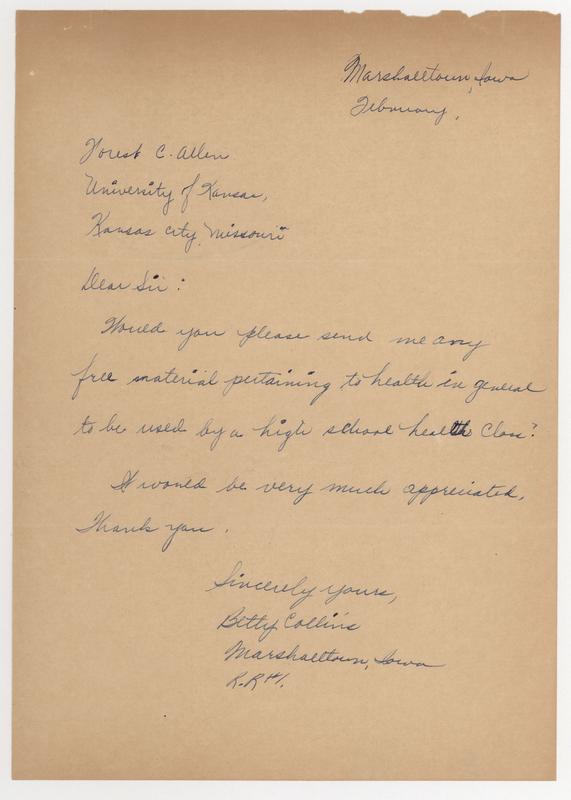 Marshalltown, Iowa
February,
Forest C. Allen
University of Kansas,
Kansas City, Missouri
Dear Sir:
Would you please send me any
free material pertaining to health in general
to be used by a high school health class?
It would be very much appreciated.
Thank you.
Sincerely yours,
Betty Collins
Marshalltown, Iowa
R.R #1.